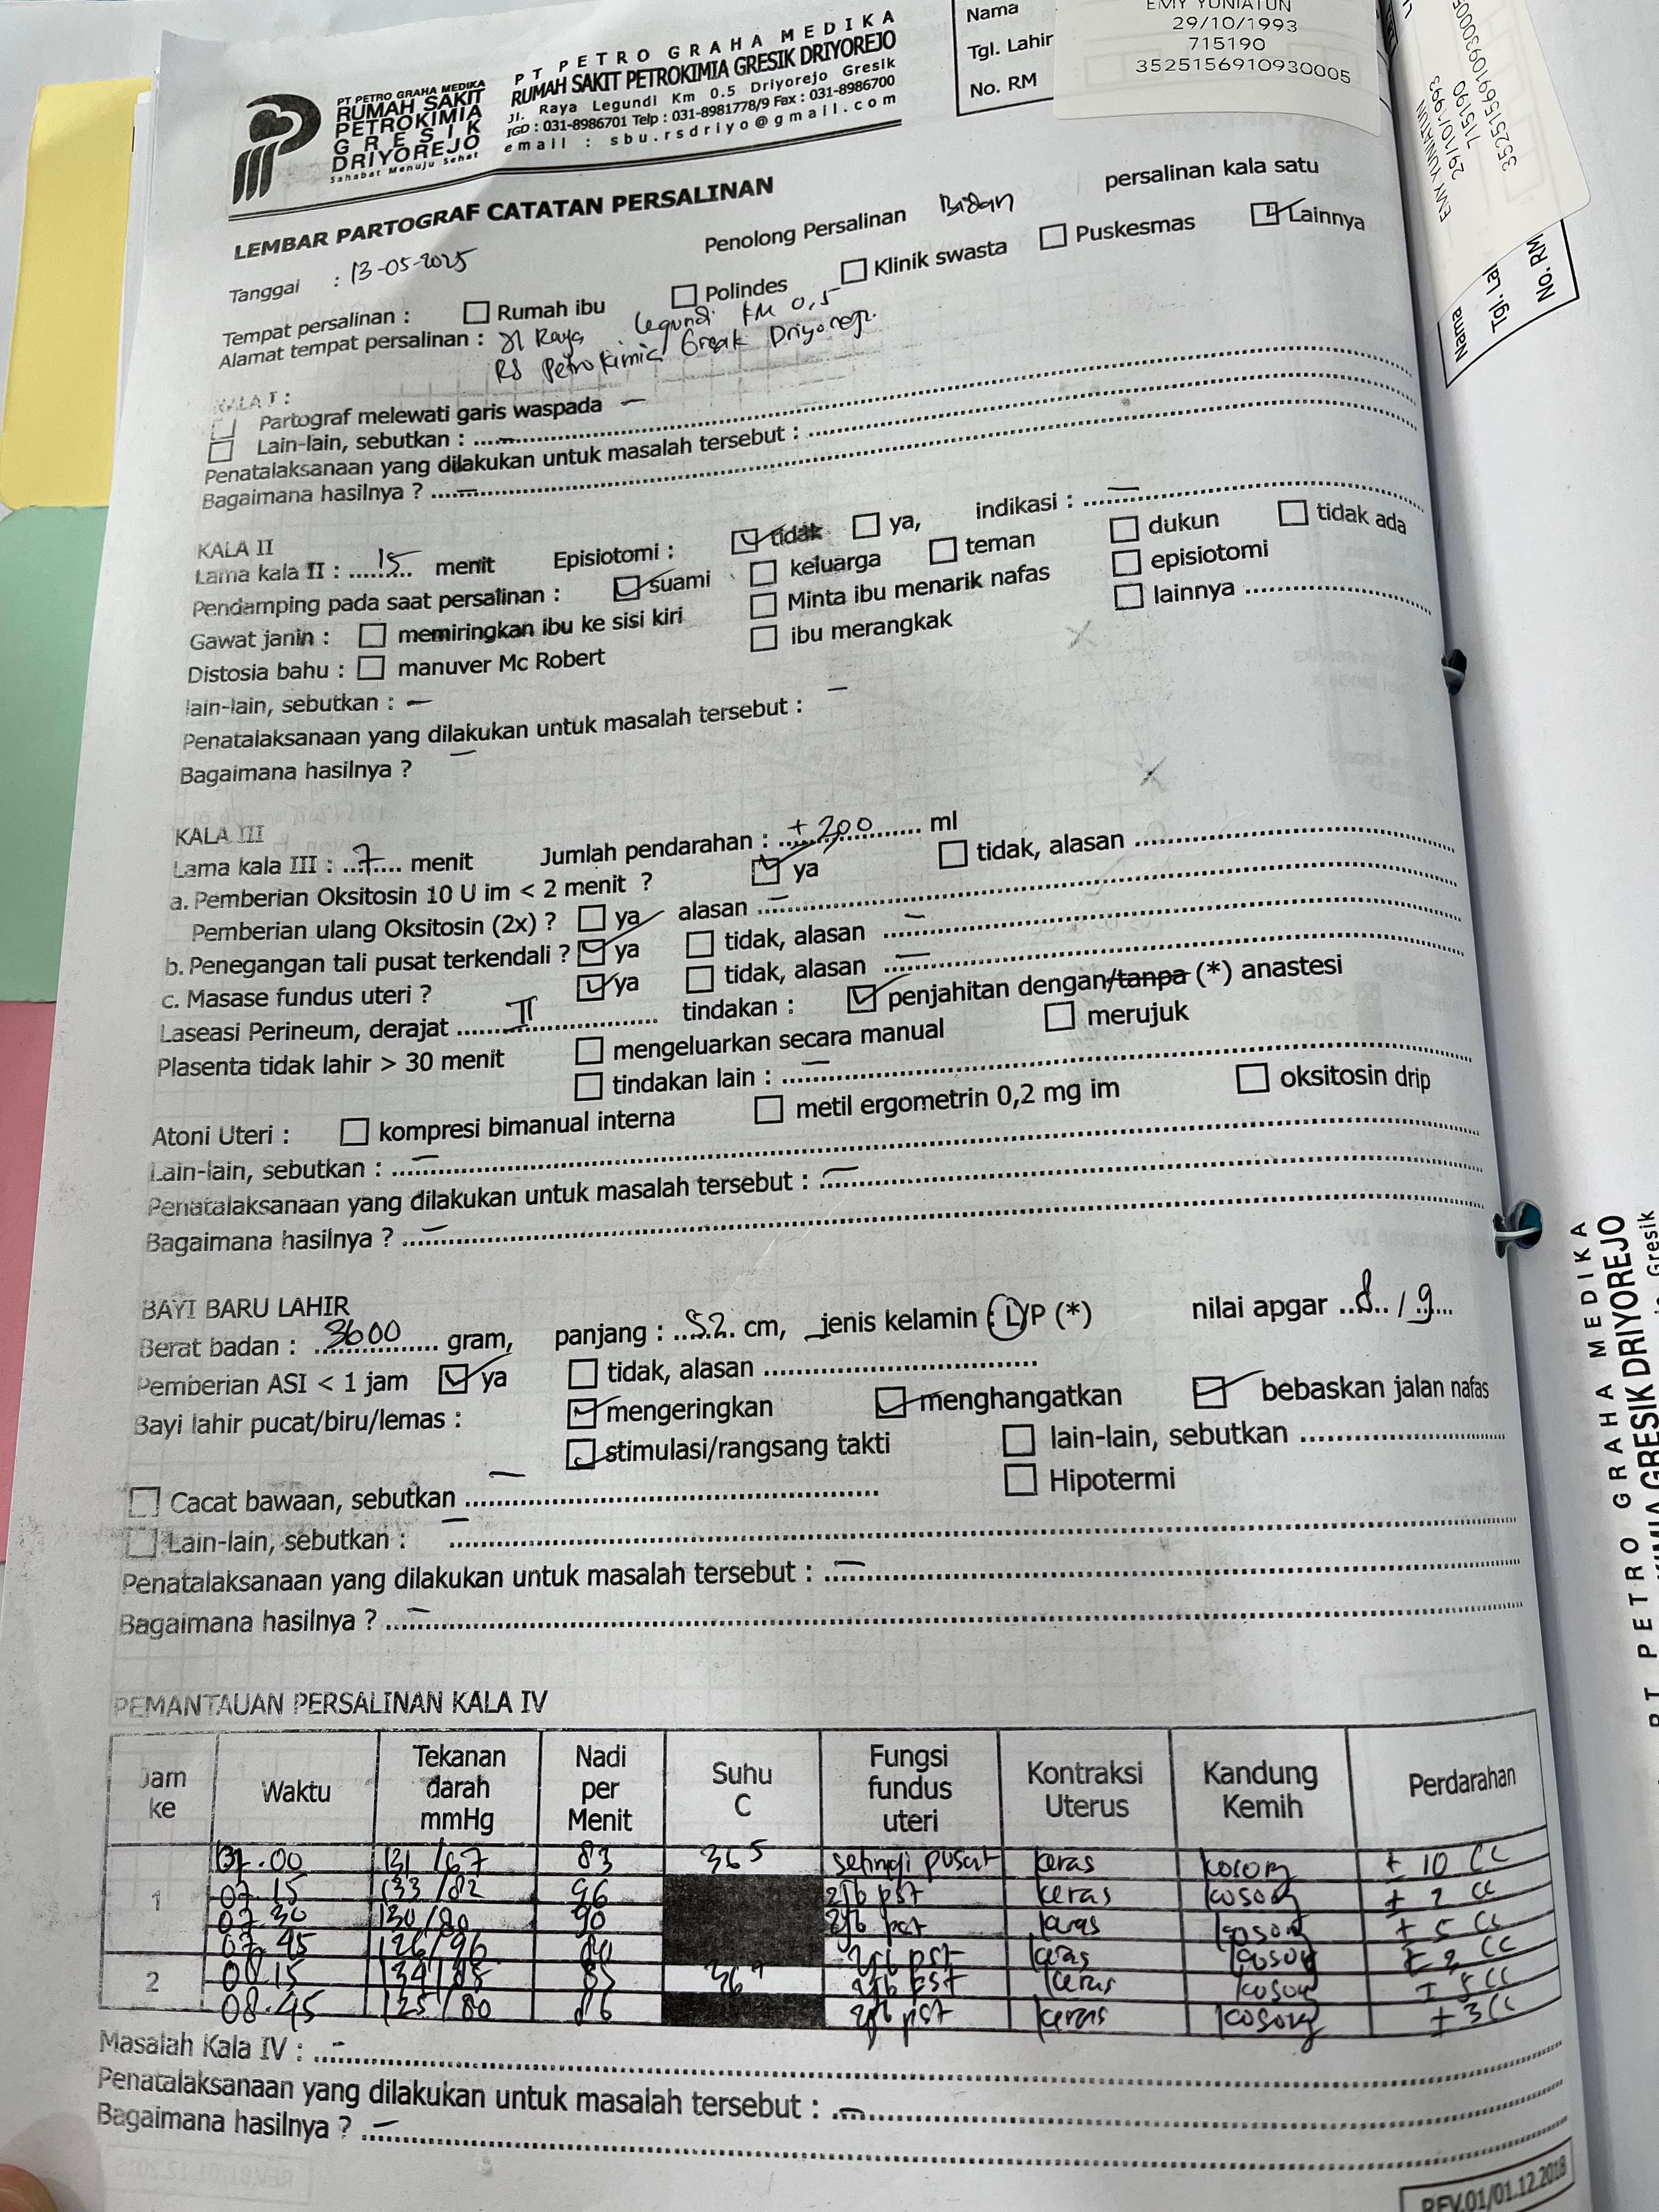 PT PETRO GRAHA MEDIKA
RUMAH SAKIT
PETROKIMIA
GRESIK
DRIYOREJO
Sahabat Menuju Sehat
PT PETRO GRAHA MEDIKA
RUMAH SAKIT PETROKIMIA GRESIK DRIYOREJO
Jl. Raya Legundi Km 0.5 Driyorejo Gresik
IGD : 031-8986701 Telp : 031-8981778/9 Fax : 031-8986700
email : sbu.rsdriyo@gmail.com
Nama
Tgl. Lahir
No. RM
EMY YUNIATUN
29/10/1993
715190
3525156910930005
LEMBAR PARTOGRAF CATATAN PERSALINAN
Tanggal : 13-05-2025 Penolong Persalinan Bidan persalinan kala satu
Tempat persalinan : Rumah ibu Polindes Klinik swasta Puskesmas Lainnya
Alamat tempat persalinan : Jl Raya Legundi KM 0,5
RS Petrokimia Gresik
KALA I :
Partograf melewati garis waspada -
Lain-lain, sebutkan : -
Penatalaksanaan yang dilakukan untuk masalah tersebut :
Bagaimana hasilnya ? -
KALA II
Lama kala II : 15 menit Episiotomi : tidak ya, indikasi : -
Pendamping pada saat persalinan : suami keluarga teman dukun tidak ada
Gawat janin : memiringkan ibu ke sisi kiri Minta ibu menarik nafas episiotomi
Distosia bahu : manuver Mc Robert ibu merangkak lainnya
lain-lain, sebutkan : -
Penatalaksanaan yang dilakukan untuk masalah tersebut : -
Bagaimana hasilnya ? -
KALA III
Lama kala III : 7 menit Jumlah pendarahan : ± 200 ml
a. Pemberian Oksitosin 10 U im < 2 menit ? ya tidak, alasan
Pemberian ulang Oksitosin (2x) ? ya alasan -
b. Penegangan tali pusat terkendali ? ya tidak, alasan -
c. Masase fundus uteri ? ya tidak, alasan -
Laseasi Perineum, derajat II tindakan : penjahitan dengan/tanpa (*) anastesi
Plasenta tidak lahir > 30 menit mengeluarkan secara manual merujuk
tindakan lain : -
Atoni Uteri : kompresi bimanual interna metil ergometrin 0,2 mg im oksitosin drip
Lain-lain, sebutkan : -
Penatalaksanaan yang dilakukan untuk masalah tersebut : -
Bagaimana hasilnya ? -
BAYI BARU LAHIR
Berat badan : 3600 gram, panjang : 52 cm, jenis kelamin : L/P (*) nilai apgar 8 / 9
Pemberian ASI < 1 jam ya tidak, alasan
Bayi lahir pucat/biru/lemas : mengeringkan menghangatkan bebaskan jalan nafas
stimulasi/rangsang takti lain-lain, sebutkan
Cacat bawaan, sebutkan - Hipotermi
Lain-lain, sebutkan : -
Penatalaksanaan yang dilakukan untuk masalah tersebut : -
Bagaimana hasilnya ? -
PEMANTAUAN PERSALINAN KALA IV
Jam ke Waktu Tekanan darah mmHg Nadi per Menit Suhu C Fungsi fundus uteri Kontraksi Uterus Kandung Kemih Perdarahan
1 07.00 131/67 83 36⁵ setinggi pusat keras kosong ± 10 cc
07.15 133/82 96 2jb pst keras kosong ± 2 cc
07.30 130/80 90 2jb pst keras kosong ± 5 cc
07.45 126/96 2jb pst keras kosong cc
2 08.15 134/88 36⁹ 2jb pst keras kosong cc
08.45 125/80 86 2jb pst keras kosong ± 3 cc
Masalah Kala IV : -
Penatalaksanaan yang dilakukan untuk masalah tersebut : -
Bagaimana hasilnya ? -
REV.01/01.12.2018
EMY YUNIATUN
29/10/1993
715190
Nama
No. RM
PT PETRO GRAHA MEDIKA
GRESIK DRIYOREJO
Gresik